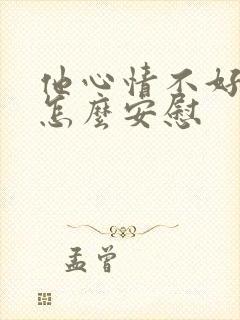 他心情不好
怎麼安慰
孟曾